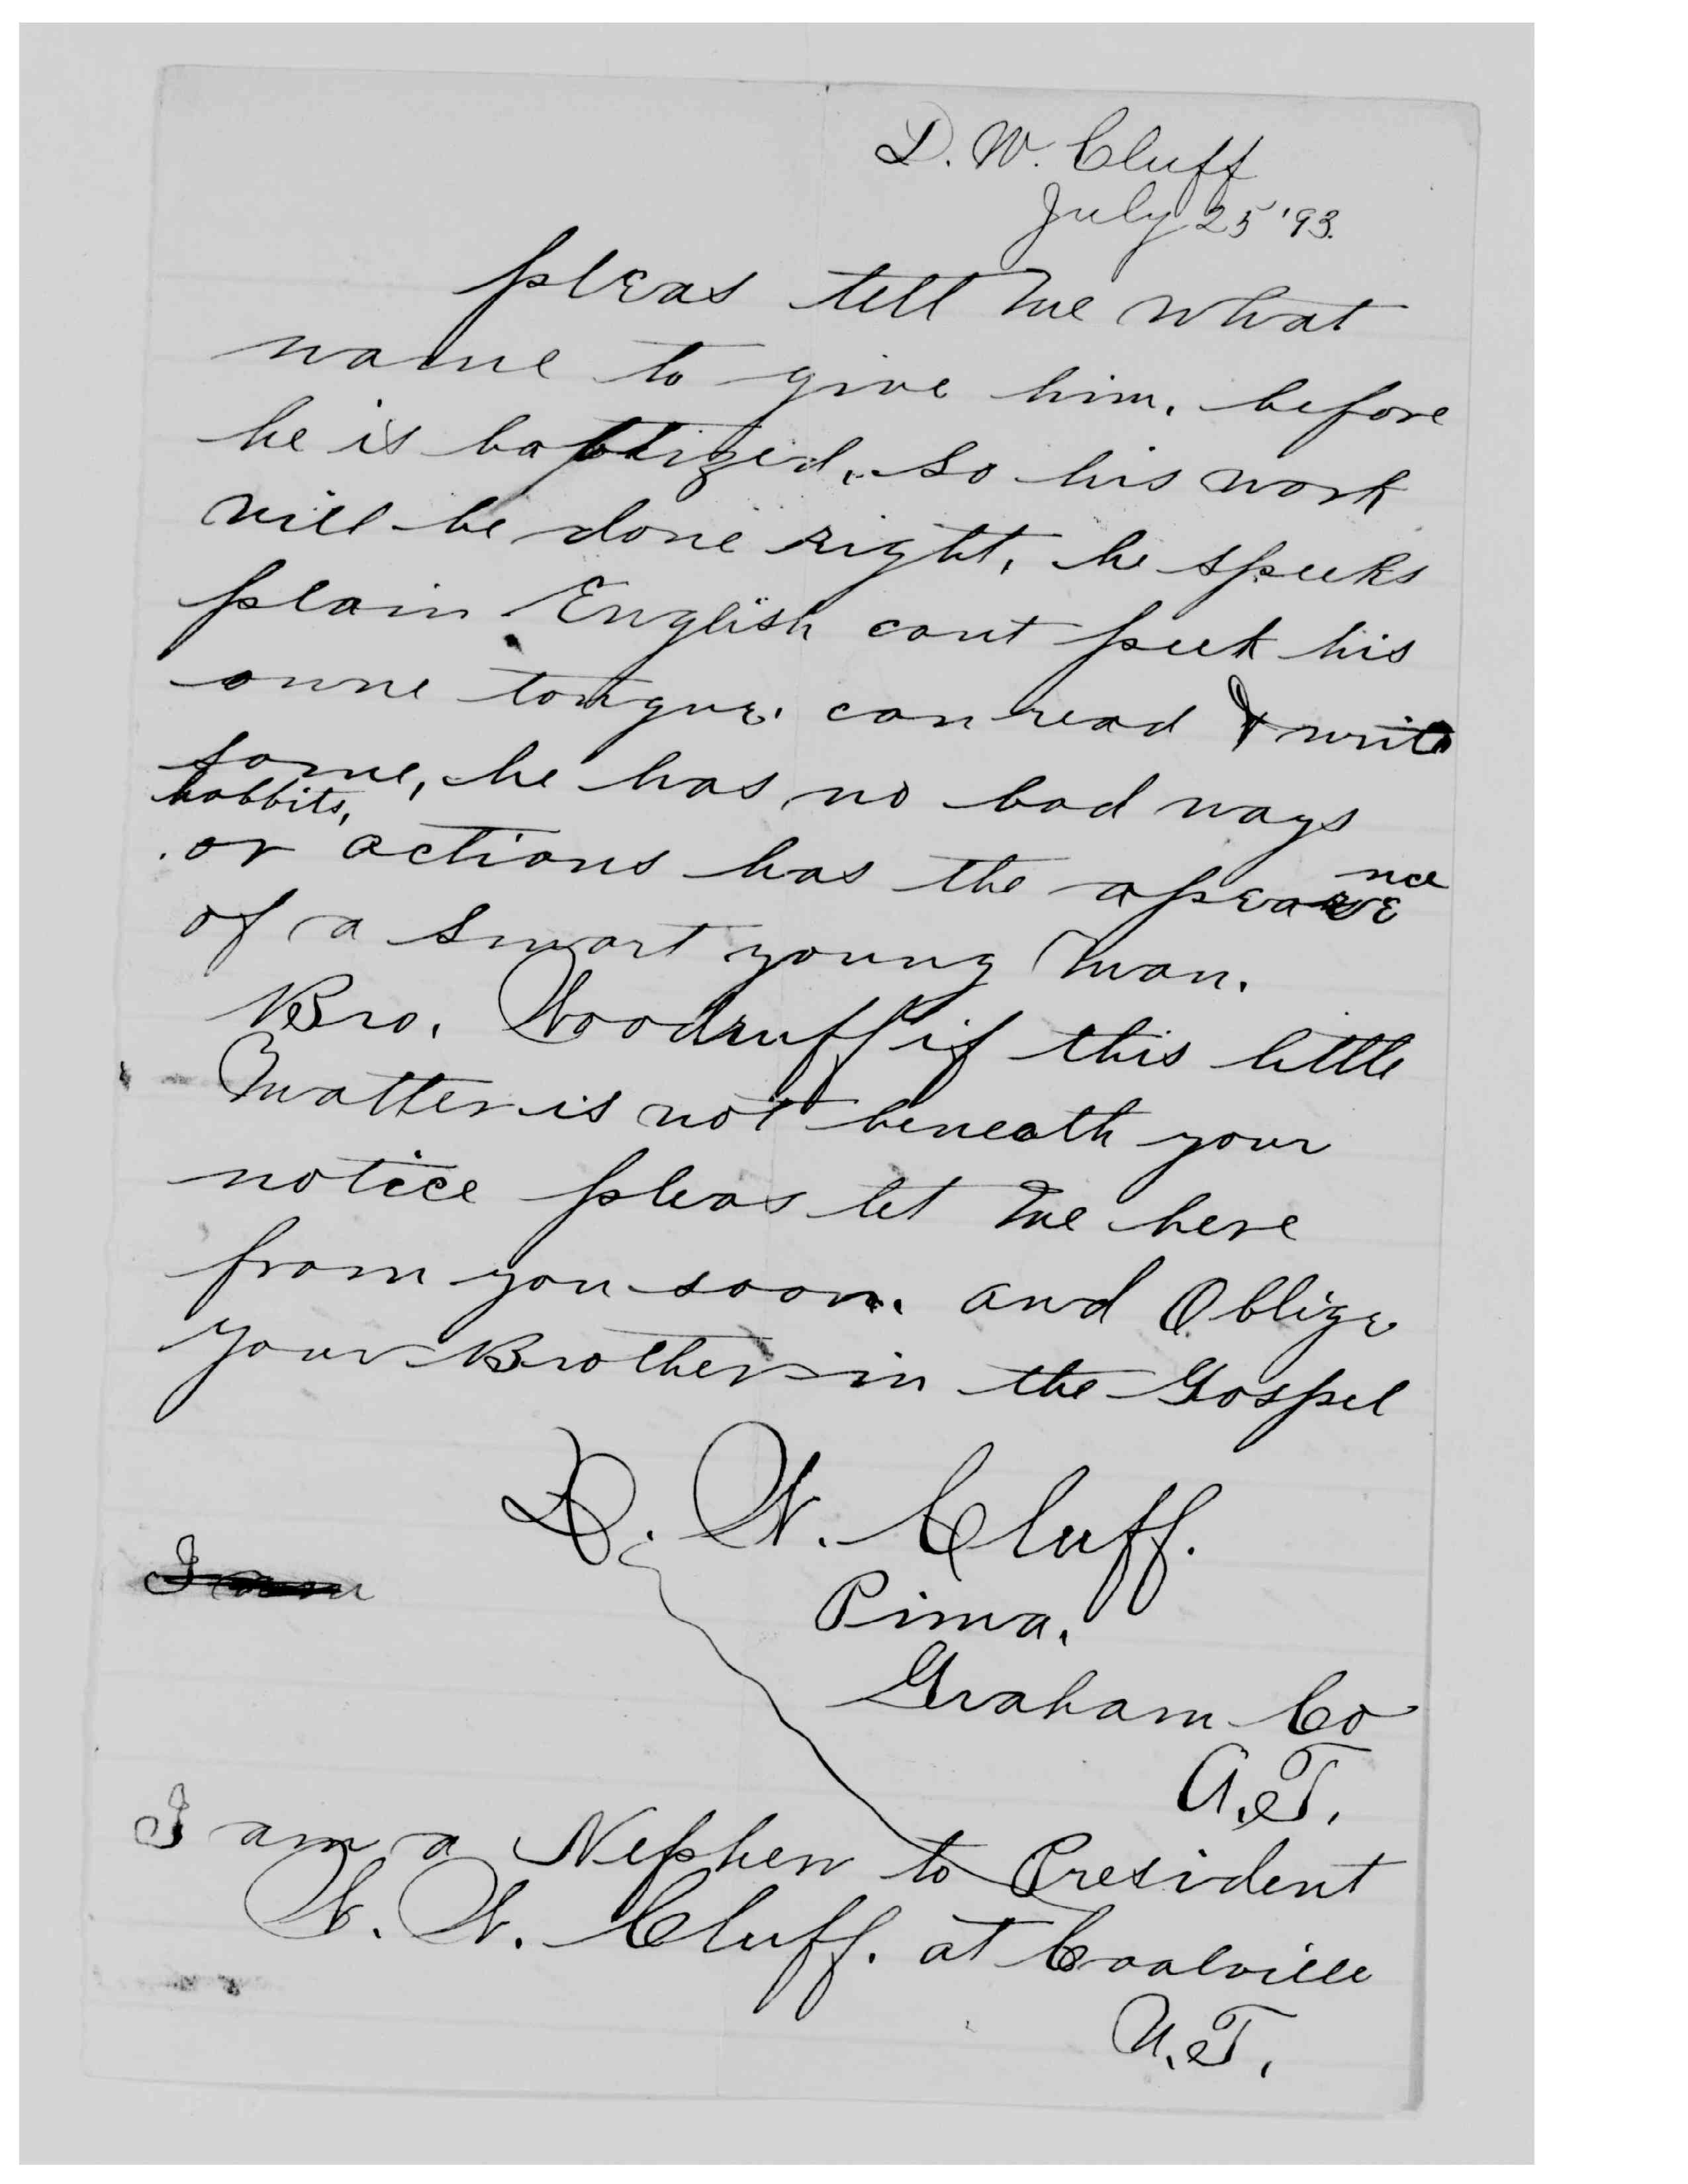 D. W. Cluff
July 25 '93.
pleas tell me what
name to give him. before
he is baptized, so his work
will be done right, he speeks
plain English cant peek his
owne tongue. can read & write
some, he has no bad ways
habbits,
or actions has the apearance
of a smart young man.
Bro. Woodruff if this little
matter is not beneath your
notice pleas let me here
from you soon. and Oblige
your Brother in the Gospel
D. W. Cluff.
Pima.
Graham Co
A.T.
I am a Nephew to President
W. W. Cluff. at Coalville
U.T.